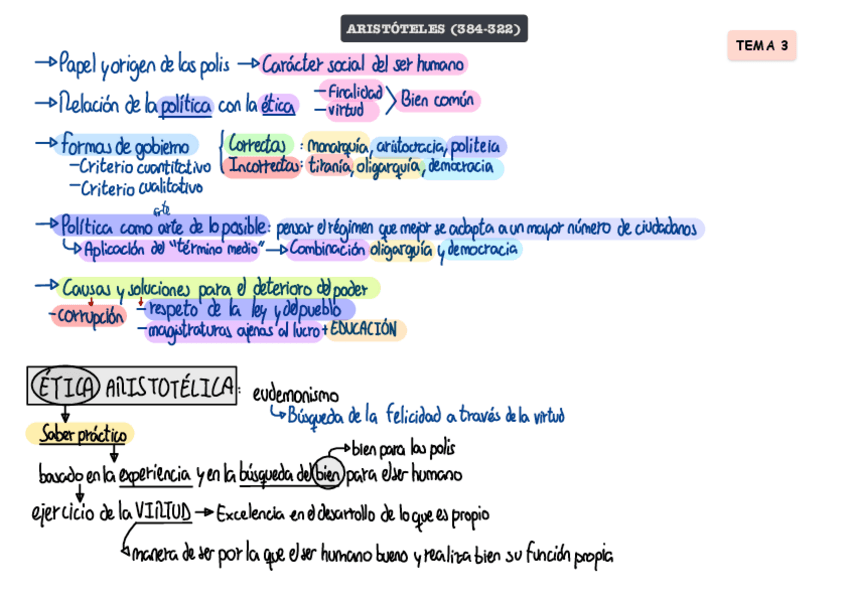 ARISTÓTELES (384-322)
TEMA 3
→Papel y origen de las polis → Carácter social del ser humano
→Relación de la política con la ética -finalidad -virtud > Bien común
→formas de gobierno { Correctas : monarquía, aristocracia, politeia
-Criterio cuantitativo Incorrectas: tiranía, oligarquía, democracia
-Criterio cualitativo
arte
→Política como arte de lo posible: pensar el régimen que mejor se adapta a un mayor número de ciudadanos
↳Aplicación del "término medio" → Combinación oligarquía y democracia
→Causas y soluciones para el deterioro del poder
-corrupción -respeto de la ley y del pueblo
-magistraturas ajenas al lucro + EDUCACIÓN
ÉTICA ARISTOTÉLICA: eudemonismo
↳Búsqueda de la felicidad a través de la virtud
Saber práctico
→bien para las polis
basado en la experiencia y en la búsqueda del bien para el ser humano
ejercicio de la VIRTUD → Excelencia en el desarrollo de lo que es propio
manera de ser por la que el ser humano bueno y realiza bien su función propia